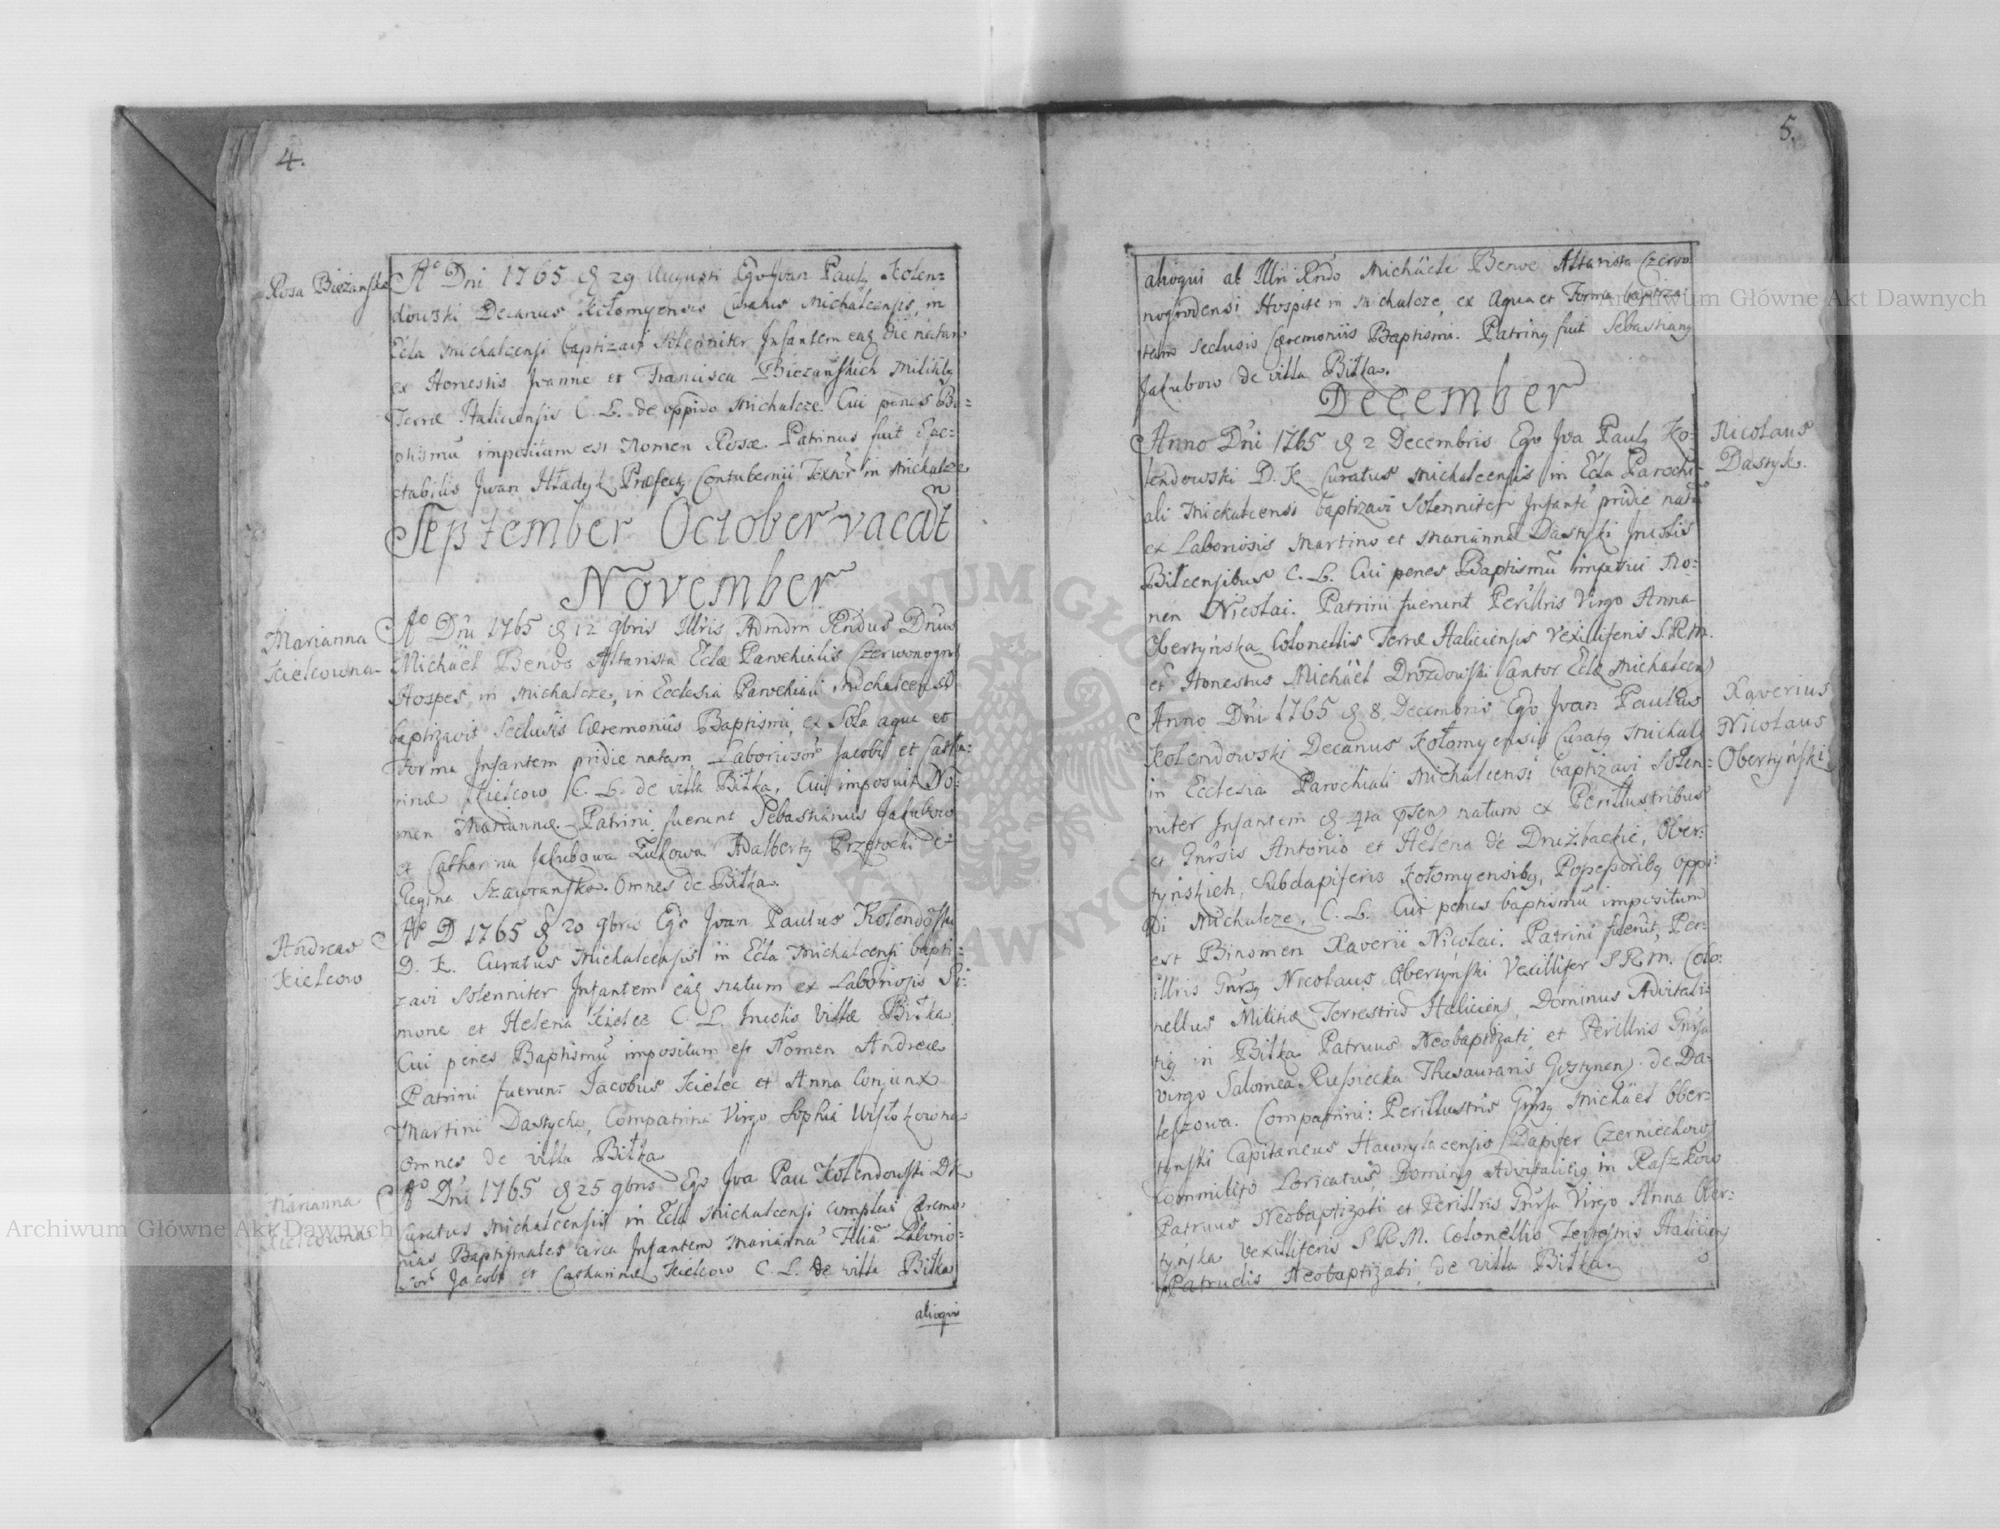 4.
Rosa Bieżańska
Aº Dni 1765 29 Augusti Ego Jvan Paulus Kolen=
dowski Decanus Kołomyensis Curatus Michalcensis, in
Ecla Michalcensi baptizavi Solenniter Infantem die natam
ex Honestis Joanne et Francisca Bieżańskich Militibus
Terræ Haliciensis C. L. de oppido Michalcze. Cui penes Ba=
ptismū impositum est Nomen Rosæ. Patrinus fuit Spe=
ctabilis Jwan Hładyk Præfectus Contubernii in Michalcze
September October vacant
November
Marianna
Kielcowna
Aº Dni 1765 12 9bris Illris Admdm Rndus Dnus
Michäel Benoe Altarista Eclæ Parochialis Czerwonogro
Hospes in Michalcze, in Ecclesia Parochiali Michalcensi
baptizavit Seclusis Cæremoniis Baptismi, ex Sola aqua et
Forma Infantem pridie natam Laboriosor Jacobi et Catha=
rinæ Kielcow C. L. de villa Biłka, Cui imposuit No=
men Mariannæ. Patrini fuerunt Sebastianus Jakubow
et Catharina Jakubowa Adalbertus et
Regina Omnes de Biłka.
Andreas
Kielcow
Aº D 1765 20 9bris Ego Jvan Paulus Kolendoski
D. K. Curatus Michalcensis in Ecla Michalcensi bapti=
zavi Solenniter Infantem natum ex Laboriosis Si=
mone et Helena Kielec C. L. Incolis Villæ Biłka
Cui penes Baptismū impositum est Nomen Andreæ
Patrini fuerunt Jacobus Kielec et Anna Conjunx
Martini Dastycha, Compatrina Virgo Sophia
Omnes de villa Biłka
Marianna
Kielcowna
Aº Dni 1765 25 9bris Ego Jva Pau Kolendowski DK
Curatus Michalcensis in Ecla Michalcensi Cæremo=
nias Baptismales circa Infantem Mariannā Filiā Laborio=
sor Jacobi et Catharinæ Kielcow C. L. de villa Biłka
alioqui
5.
alioqui ab Illri Rndo Michäele Benoe Altarista Czerwo
nogrodensi Hospite in Michalcze, ex Aqua et Forma baptiza=
tam Seclusis Cæremoniis Baptismi. Patrinus fuit Sebastianus
Jakubow de villa Biłka.
December
Nicolaus
Dastyk.
Anno Dni 1765 2 Decembris Ego Jva Paulus Ko=
lendowski D. K. Curatus Michalcensis in Ecla Parochi=
ali Michalcensi baptizavi Solenniter Infantē pridie natū
ex Laboriosis Martino et Marianna Dastyki Incolis
Biłcensibus C. L. Cui penes Baptismū No=
men Nicolai. Patrini fuerunt Perillris Virgo Anna
Obertyńska Colonellis Terræ Haliciensis Vexilliferis S.R.M.
et Honestus Michäel Drozdowski Cantor Eclæ Michalcen
Xaverius
Nicolaus
Obertyński
Anno Dni 1765 8 Decembris Ego Jvan Paulus
Kolendowski Decanus Kołomyensis Curatus Michal
in Ecclesia Parochiali Michalcensi baptizavi Solen=
niter Infantem 4ta natum ex Perillustribus
et Gnrsis Antonio et Helena de Drużbackie, Ober=
tyńskich, Subdapiferis Kołomyensibus, Possessoribus oppi=
di Michalcze, C. L. Cui penes baptismū impositum
est Binomen Xaverii Nicolai. Patrini fuerūt, Per=
illris Gnrsus Nicolaus Obertyński Vexillifer S R M. Colo=
nellus Militiæ Terrestris Haliciens, Dominus Advitali=
tius in Biłka Patruus Neobaptizati, et Perillris Gnrsa
Virgo Salomea Thesauraris Gostynen. de Da=
leszowa. Compatrini: Perillustris Gnrsus Michäel Ober=
tynski Capitaneus Dapifer
Commilito Loricatus Dominus Advitalitius in Raszkow
Patruus Neobaptizati et Perillris Gnrsa Virgo Anna Ober=
tyńska vexilliferis S.R.M. Colonellis Terrestris Haliciens
Patruelis Neobaptizati, de villa Biłka.
Archiwum Główne Akt Dawnych
Archiwum Główne Akt Dawnych
ARCHIWUM GŁÓWNE AKT DAWNYCH